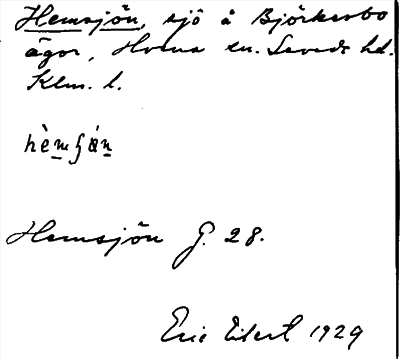 Hemsjön, sjö å Björkesbo
ägor, Hvena sn. Sevede hd.
Klm. l.
hèmʃán
Hemsjön G. 28.
Eric Eilert 1929